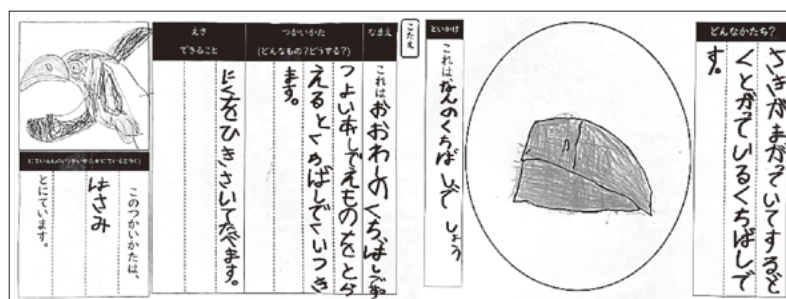 どんなかたち?
さきがまがっていてするど
くとがっているくちばしで
す。
といかけ
これは、なんのくちばしでしょう
こたえ
なまえ
これはおおわしのくちばしです
つかいかた
(どんなもの?どうする?)
つよいあしでえものをとら
えるとくちばしでくいつき
ます。
えさ
できること
にくをひきさいてたべます。
このつかいかたは、
はさみ
とにています。